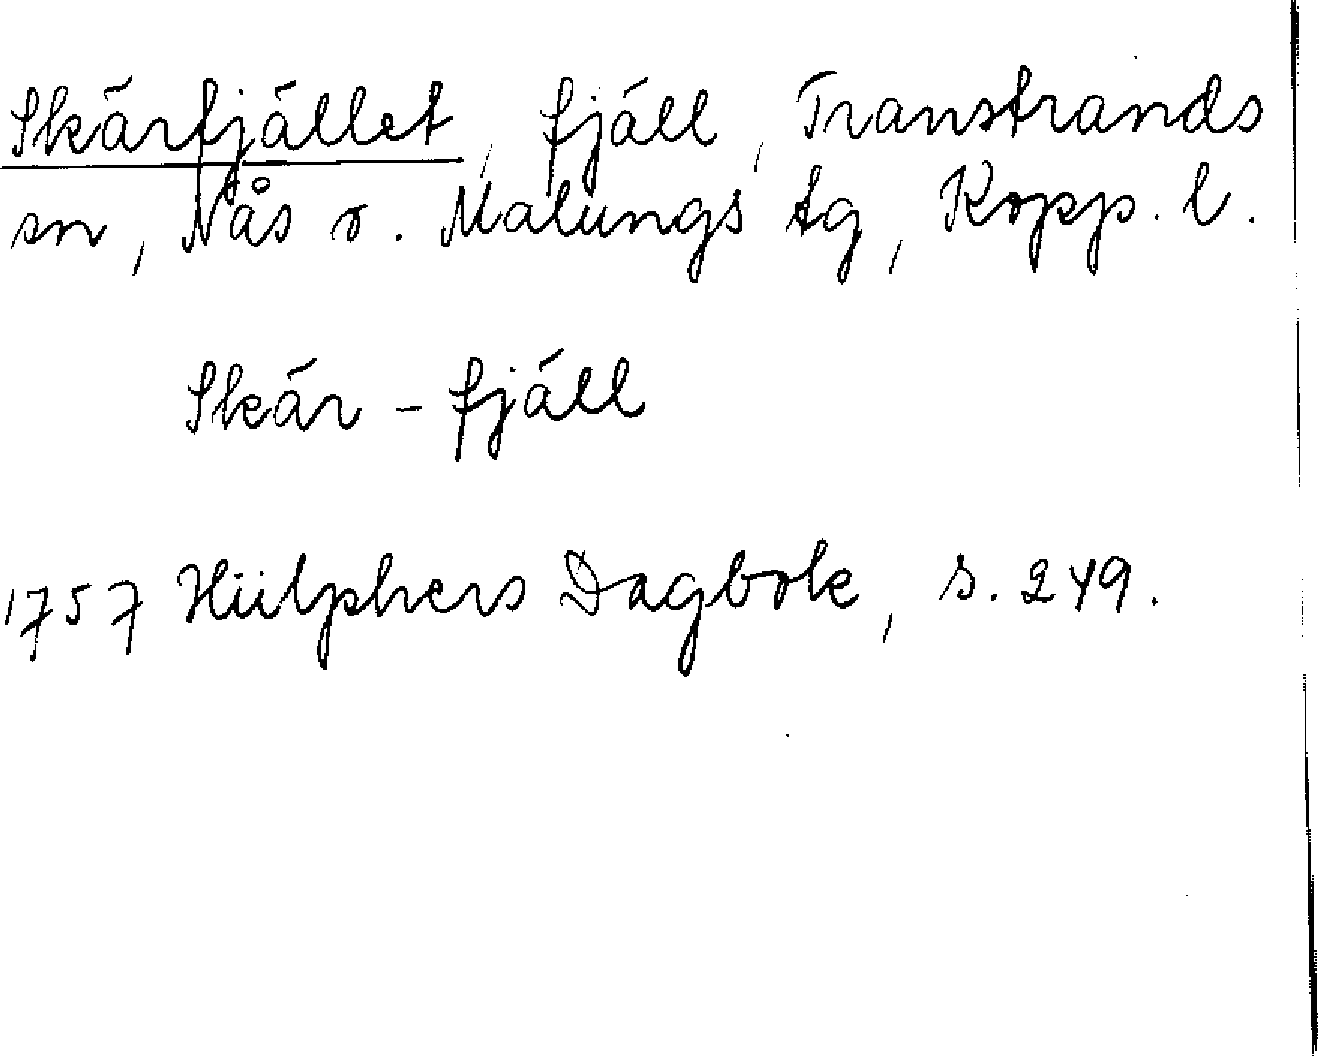 Skärfjället, fjäll, Transtrands
sn, Nås o. Malungs tg, Kopp. l.
Skär - fjäll
1757 Hülphers Dagbok, s. 249.